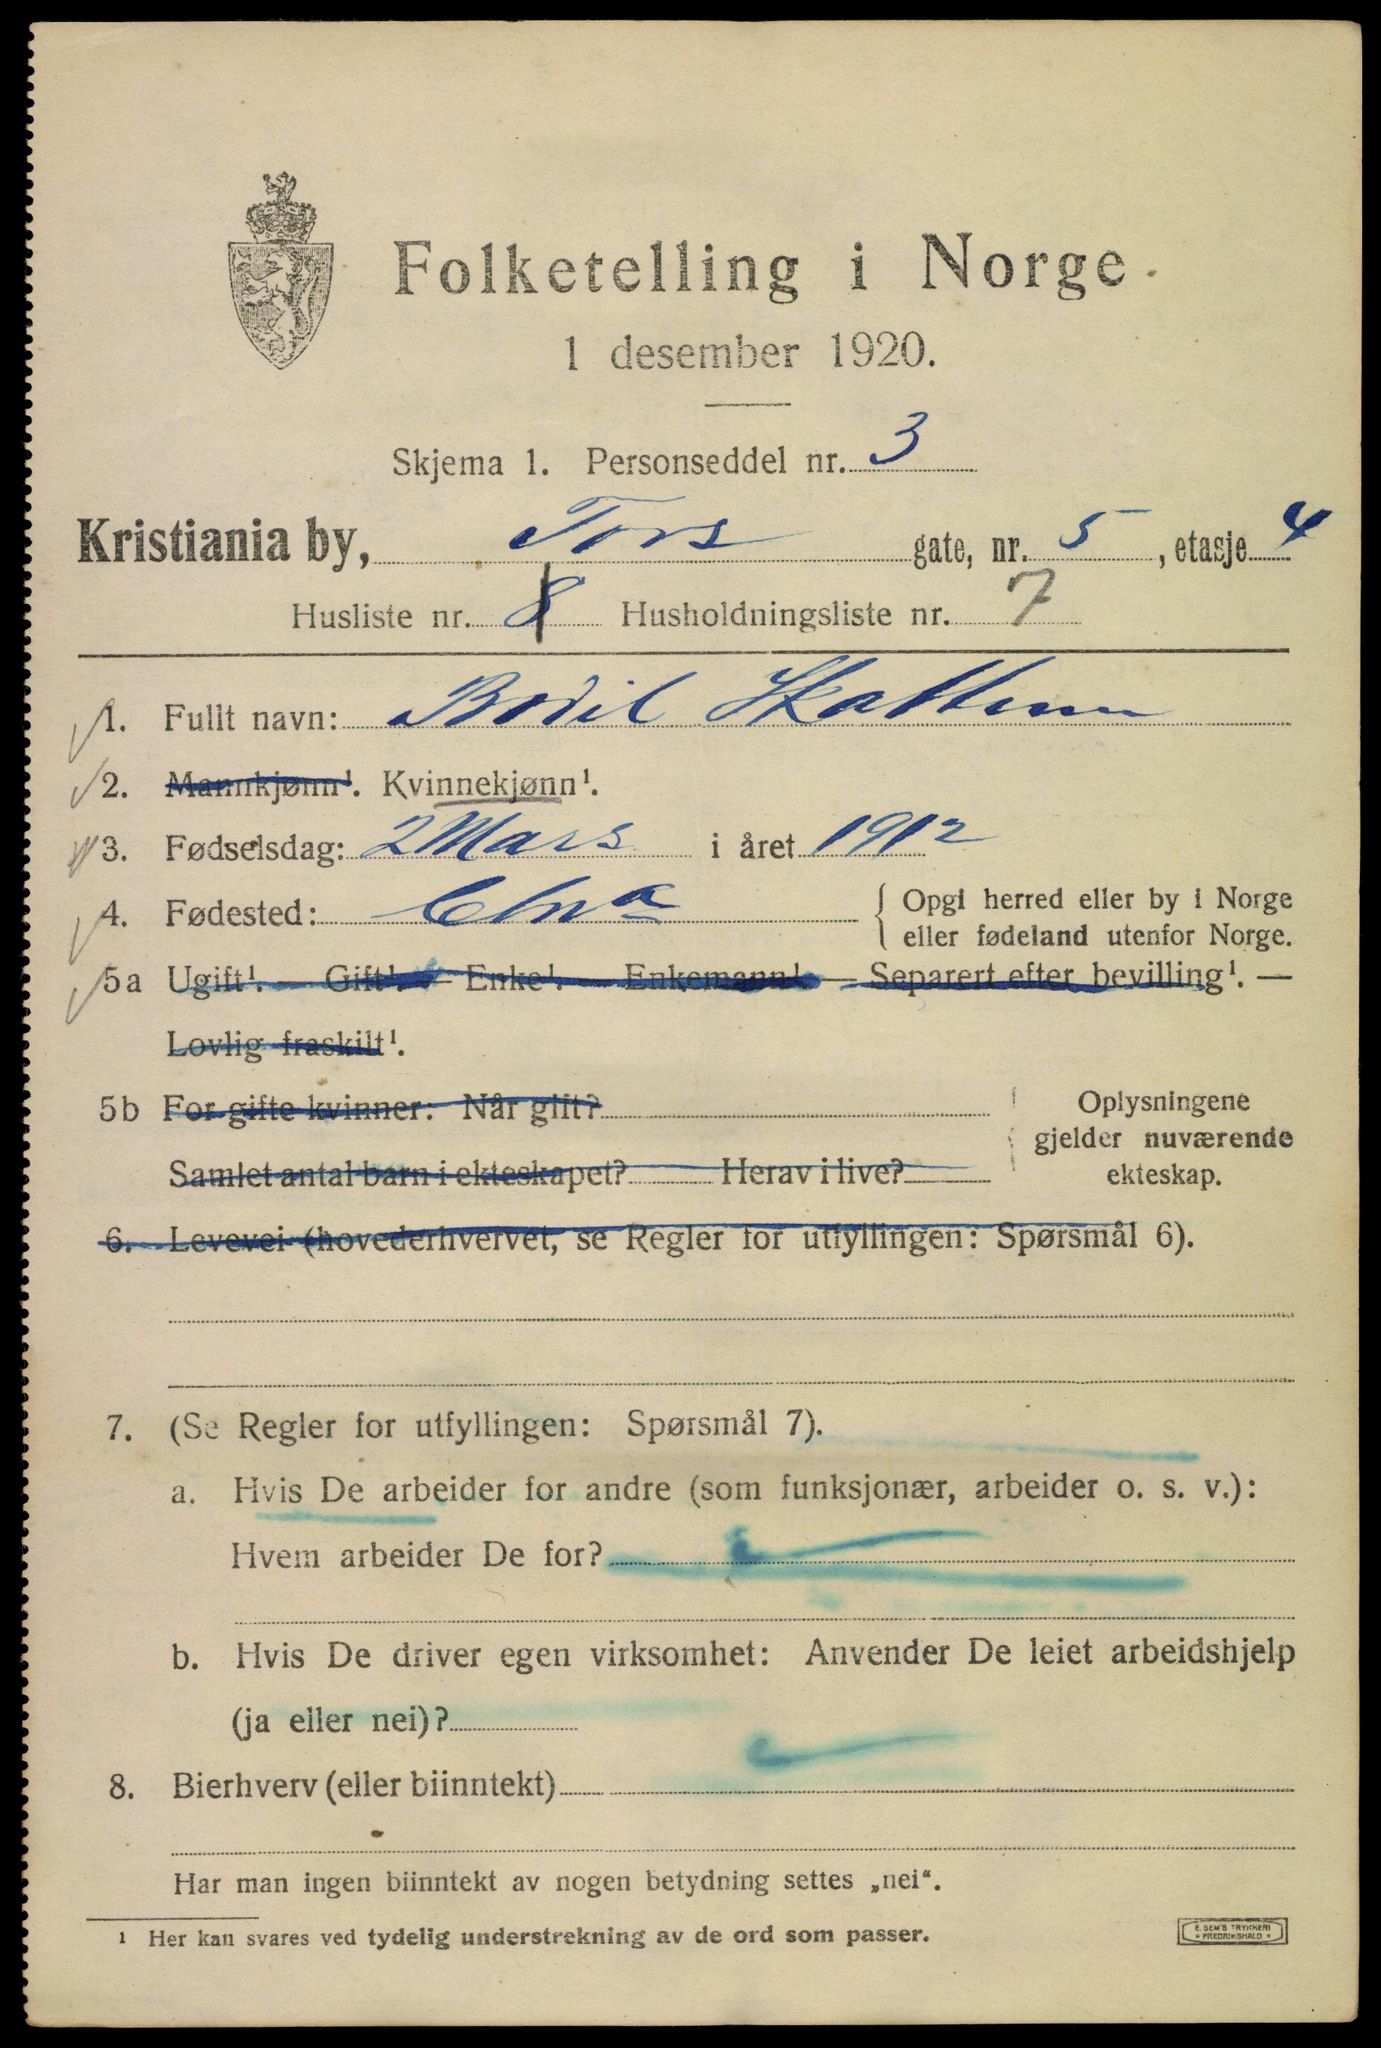 Folketelling i Norge
1 desember 1920.
Skjema 1. Personseddel nr. 3
Kristiania by, Tors gate, nr. 5, etasje 4
Husliste nr. 8 Husholdningsliste nr. 7
1. Fullt navn: Bodil
2. Mannkjønn¹. Kvinnekjønn¹.
3. Fødselsdag: 2 Mars i året 1912
4. Fødested: Chra { Opgi herred eller by i Norge
eller fødeland utenfor Norge.
5a Ugift¹. — Gift¹. — Enke¹. — Enkemann¹. — Separert efter bevilling¹. —
Lovlig fraskilt¹.
5b For gifte kvinner: Når gift?
Samlet antal barn i ekteskapet? Herav i live?
Oplysningene
gjelder nuværende
ekteskap.
6. Levevei (hovederhvervet, se Regler for utfyllingen: Spørsmål 6).
7. (Se Regler for utfyllingen: Spørsmål 7).
a. Hvis De arbeider for andre (som funksjonær, arbeider o. s. v.):
Hvem arbeider De for?
b. Hvis De driver egen virksomhet: Anvender De leiet arbeidshjelp
(ja eller nei)?
8. Bierhverv (eller biinntekt)
Har man ingen biinntekt av nogen betydning settes „nei“.
¹ Her kan svares ved tydelig understrekning av de ord som passer.
E. SEM'S TRYKKERI
FREDRIKSHALD